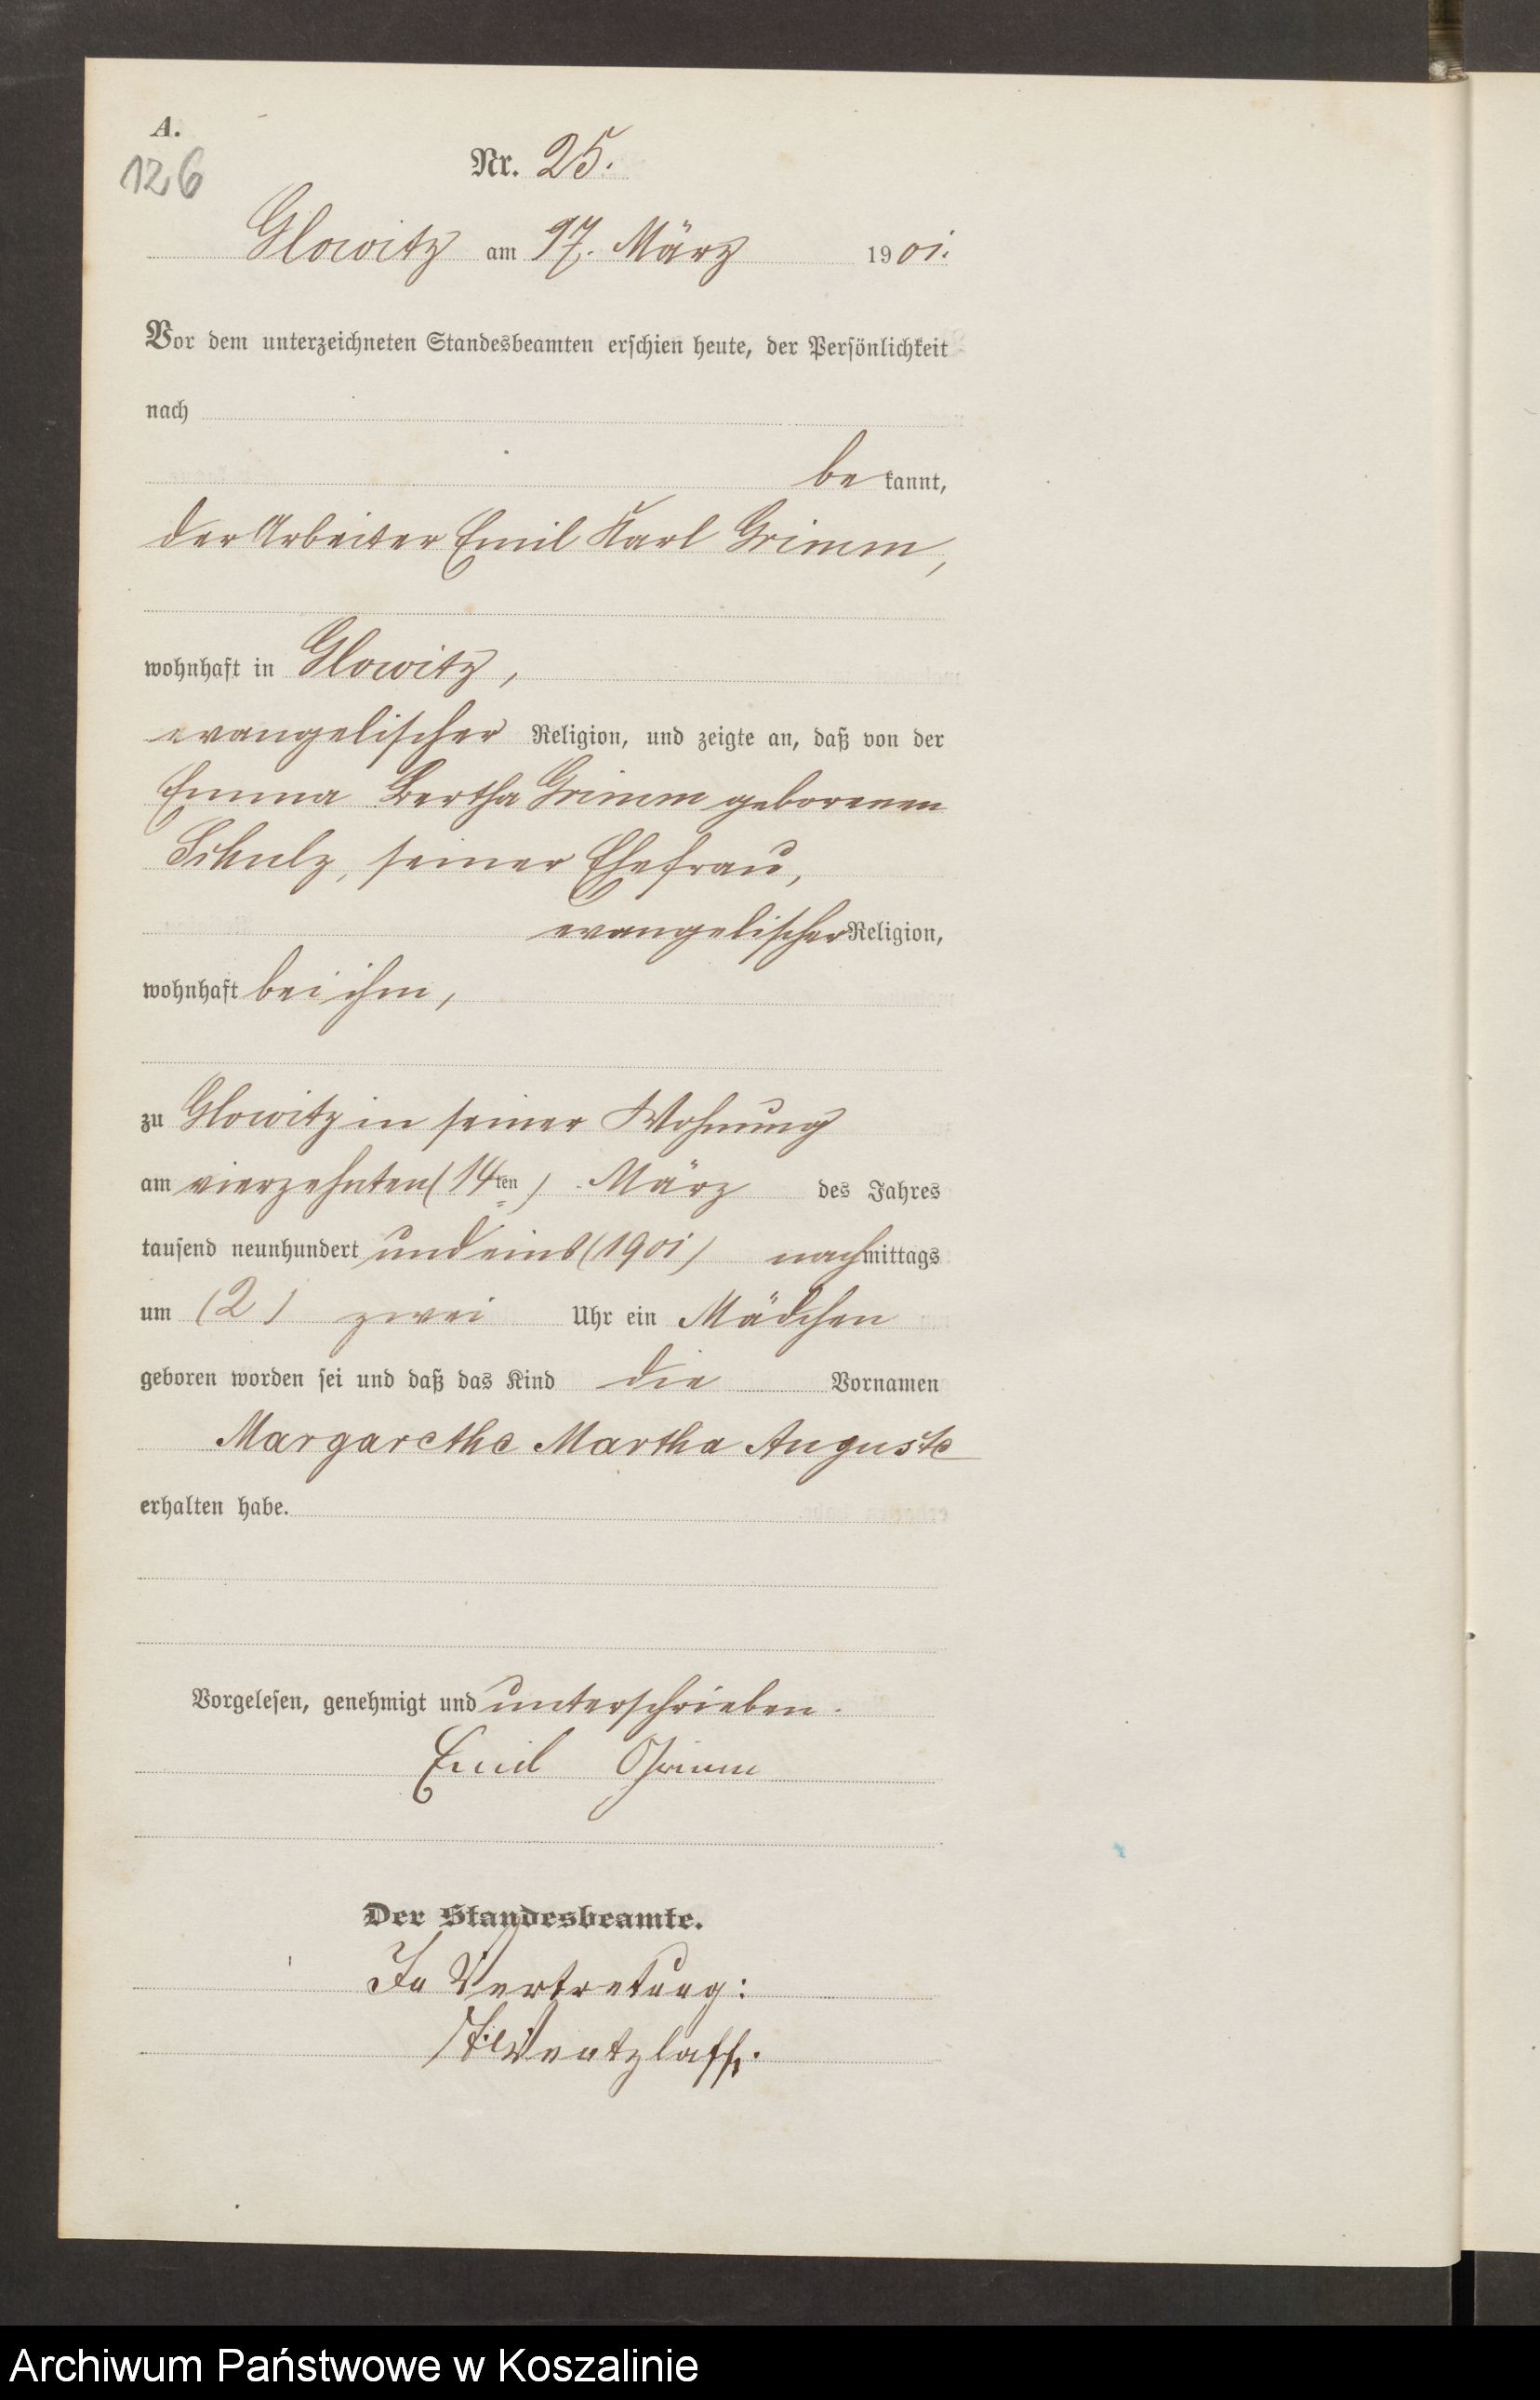 A.
126
Nr. 25.
Glowitz am 17. März 1901.
Vor dem unterzeichneten Standesbeamten erschien heute, der Persönlichkeit
nach
bekannt,
der Arbeiter Emil Karl Grimm,
wohnhaft in Glowitz,
evangelischer Religion, und zeigte an, daß von der
Emma Bertha Grimm geborenen
Schulz, seiner Ehefrau,
evangelischer Religion,
wohnhaft bei ihm,
zu Glowitz in seiner Wohnung
am vierzehnten (14ten) März des Jahres
tausend neunhundert und eins (1901) nachmittags
um (2) zwei Uhr ein Mädchen
geboren worden sei und daß das Kind die Vornamen
Margarethe Martha Auguste
erhalten habe.
Vorgelesen, genehmigt und unterschrieben.
Emil Grimm
Der Standesbeamte.
In Vertretung:
Wentzlaff.
Archiwum Państwowe w Koszalinie